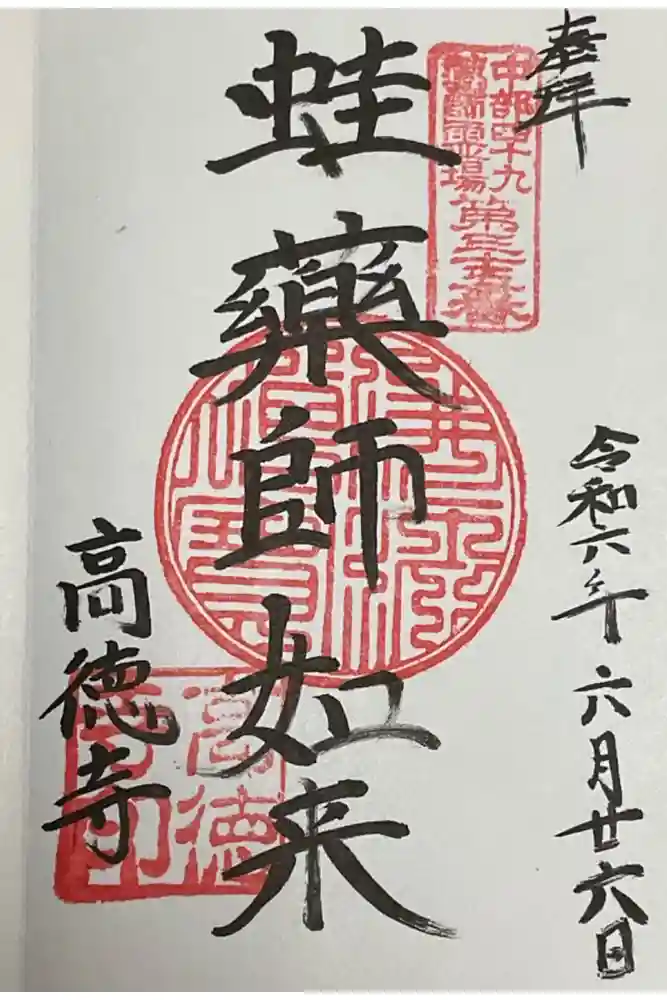 奉拝
令和六年六月廿六日
中部四十九
薬師霊場
蛙藥師如来
高徳寺
高徳
寺印